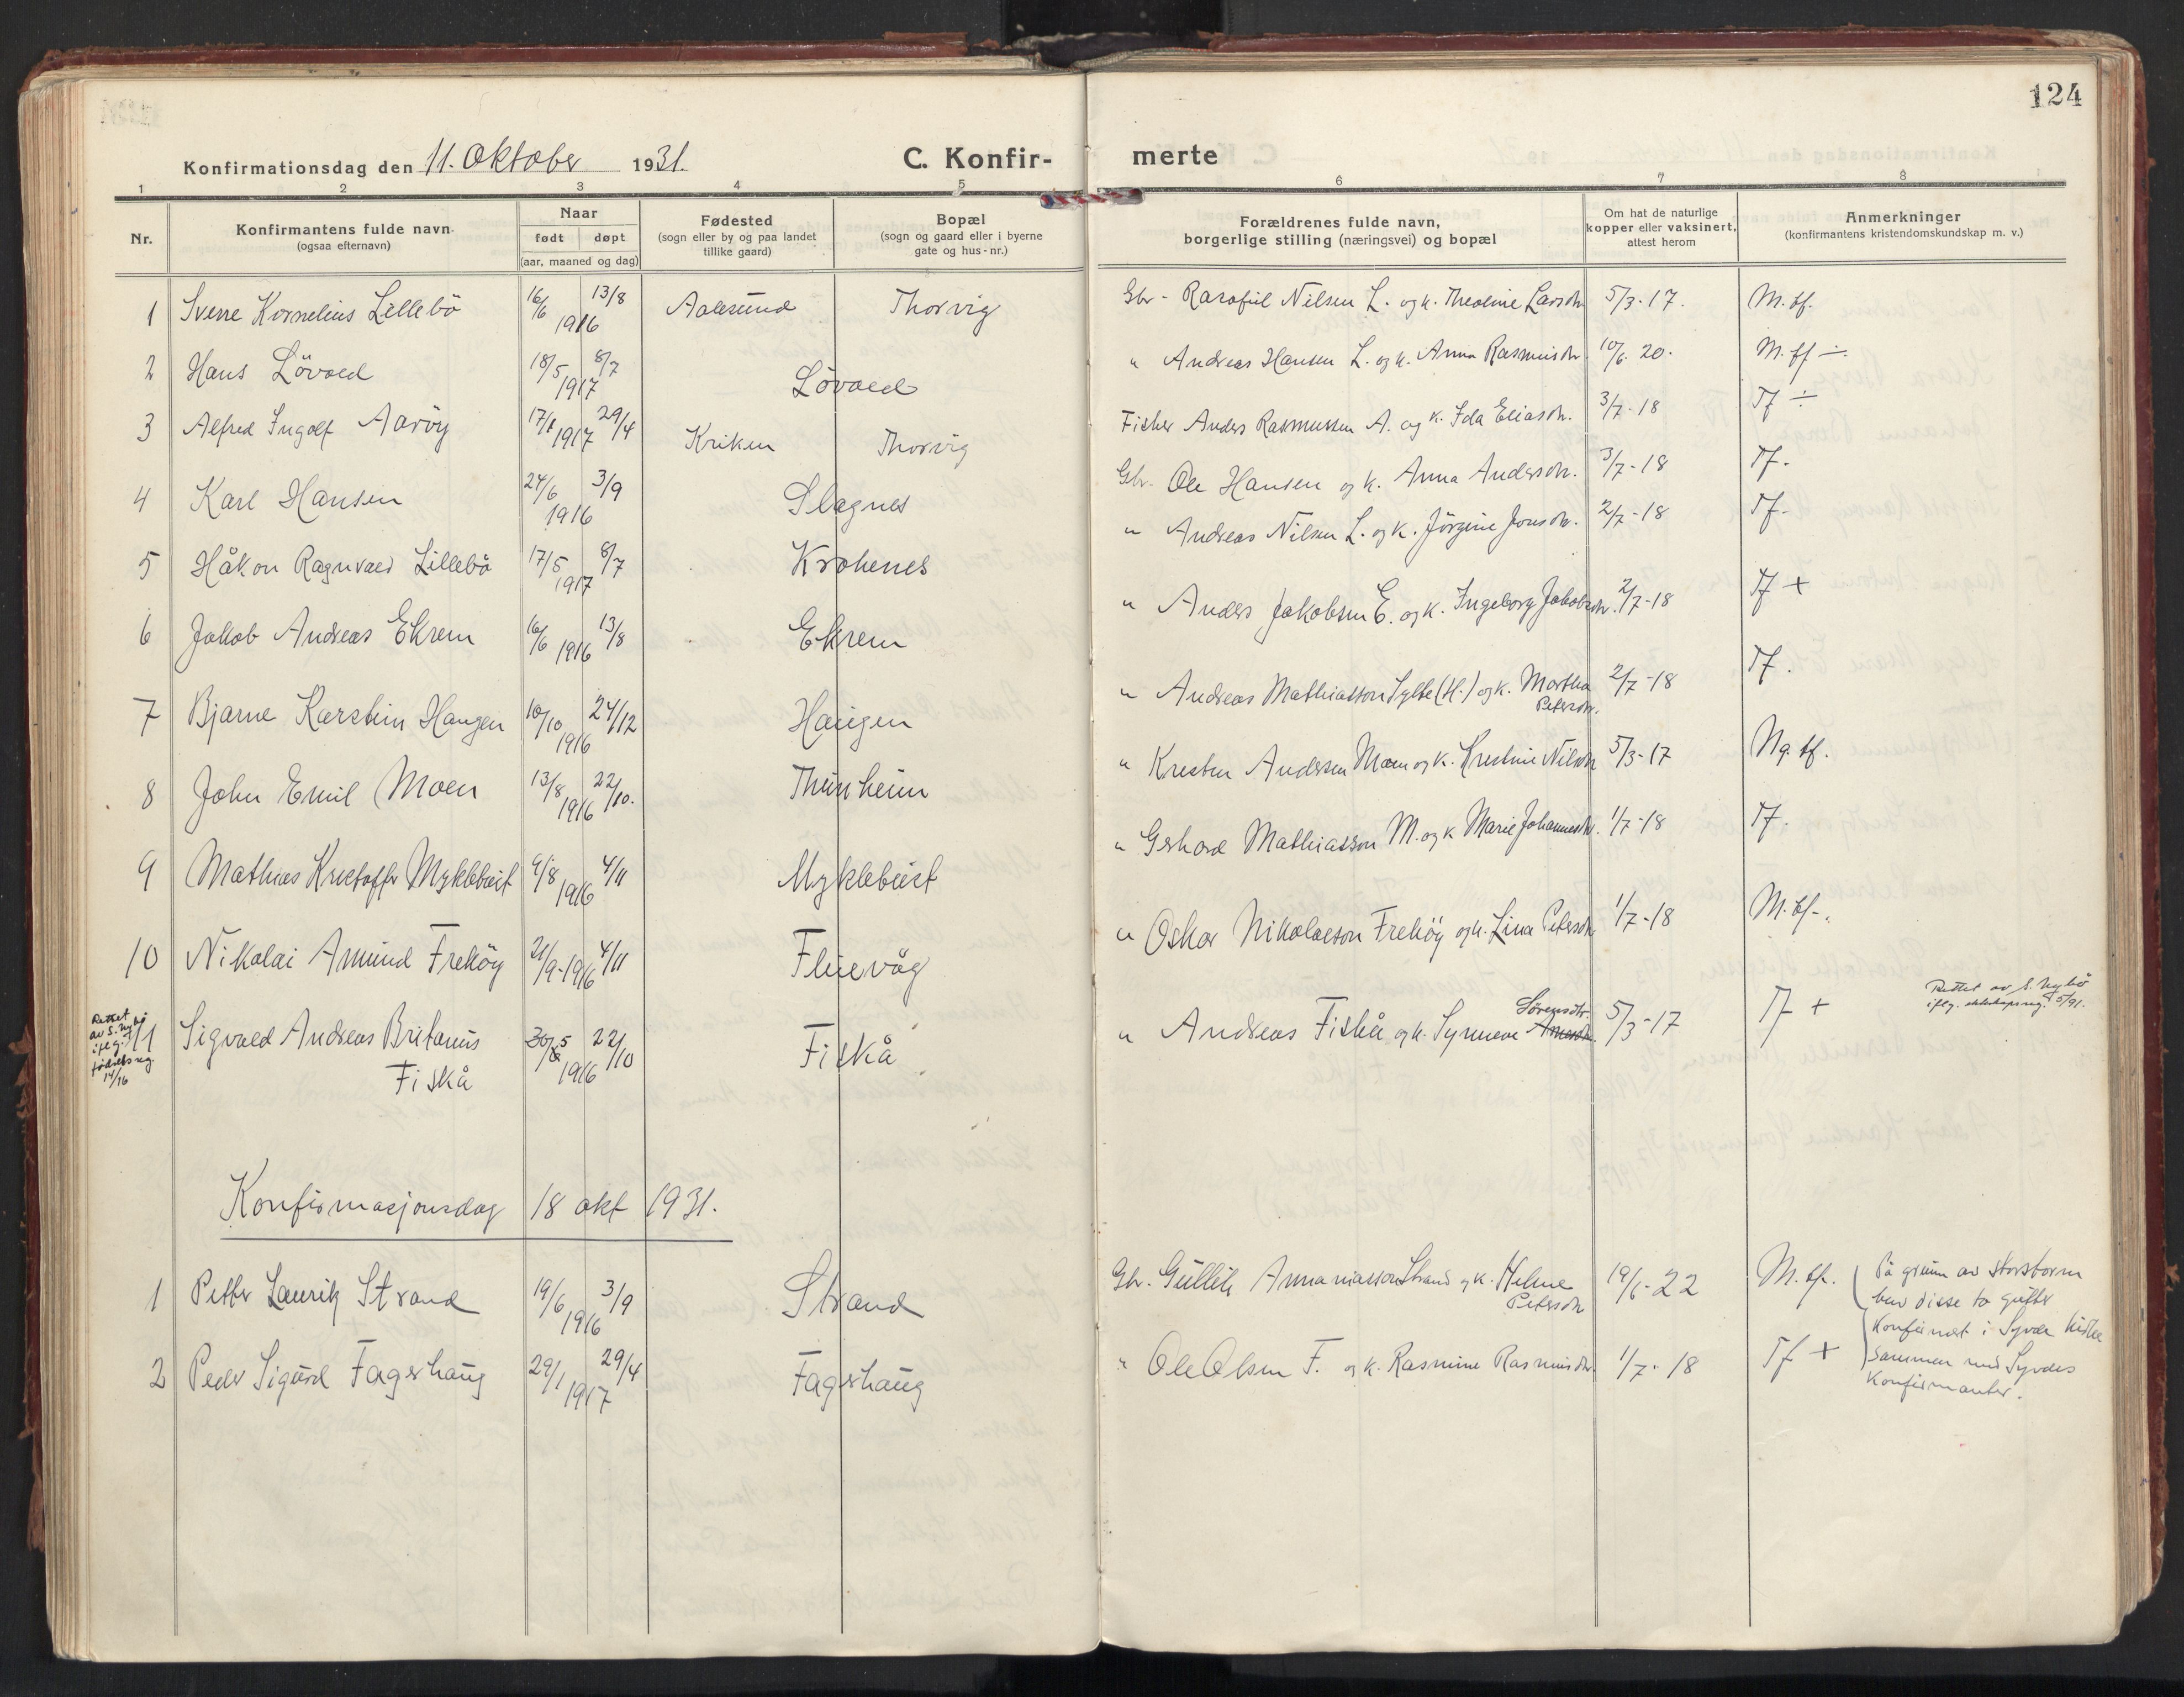 124
Konfirmationsdag den 11. Oktober 1931.
C. Konfir-
merte
1 2 3 4 5 6 7 8
Nr.
Konfirmantens fulde navn
(ogsaa efternavn)
Naar
født døpt
(aar, maaned og dag)
Fødested
(sogn eller by og paa landet
tillike gaard)
Bopæl
(sogn og gaard eller i byerne
gate og hus-nr.)
Forældrenes fulde navn,
borgerlige stilling (næringsvei) og bopæl
Om hat de naturlige
kopper eller vaksinert,
attest herom
Anmerkninger
(konfirmantens kristendomskundskap m. v.)
1 Sverre Kornelius Lillebö 16/6 1916 13/8 Aalesund Thorvig Gbr - Nilsen L. og k. Theoline Larsdtr 5/3-17. M. tf.
2 Hans Lövold 18/5 1917 8/7 Lövold " Andreas Hansen L. og k. Anna Rasmusdtr 10/6. 20. M. tf ÷
3 Alfred Ingolf Aaröy 1917 29/4 Kriken Thorvig Fisker Anders Rasmussen A. og k. Ida Eliasdtr. 3/7-18 Tf ÷
4 Karl Hansen 24/6 1916 3/9 Slagnes Gbr. Ole Hansen og k. Anna Andersdtr. 3/7-18 Tf.
5 Håkon Ragnvald Lillebö 17/5 1917 8/7 Krohenes " Andreas Nilsen L. og k. Jörgine Jonsdtr. 2/7-18 Tf.
6 Jakob Andreas Ekrem 16/6 1916 13/8 Ekrem " Anders Jakobsen E. og k. Ingeborg Jakobsdtr. 2/7-18 Tf +
7 Bjarne Karstein Haugen 10/10 1916 24/12 Haugen " Andreas Mathiasson Sylte (H.) og k. Martha
Petersdtr. 2/7-18 Tf.
8 John Emil Moen 13/8 1916 22/10. Thunheim " Kresten Andersen Moen og k. Krestine Nilsdtr 5/3-17 Ng. tf.
9 Mathias Kristoffer Myklebust 9/8 1916 4/11 Myklebust " Gerhard Mathiasson M. og k Marie Johannesdtr. 1/7-18 Tf.
10 Nikolai Amund Freköy 21/9-1916 4/11 Fluevåg " Oskar Nikolaison Freköy og k. Lina Petersdtr 1/7-18 M. tf-.
Rettet
av S. Nybö
iflg.
fødselsreg.
14/16
11 Sigvald Andreas Britanus
Fiskå 30/5 1916 22/10 Fiskå " Andreas Fiskå og k. Synneve Sörensdtr. 5/3-17 Tf +
Rettet av S. Nybö
iflg. ekteskapsreg. 5/91.
Konfirmasjonsdag 18 okt 1931.
1 Petter Lauritz Strand 19/6 1916 3/9 Strand Gbr. Gullik Annaniasson Strand og k. Helene
Petersdtr 19/6-22 M. tf.
2 Peder Sigurd Fagerhaug 29/1 1917 29/4 Fagerhaug " Ole Olsen F. og k. Rasmine Rasmusdtr. 1/7-18 Tf +
På grunn av storstorm
blev disse to gutter
konfirmert i Syvde kirke
sammen med Syvdes
konfirmanter.